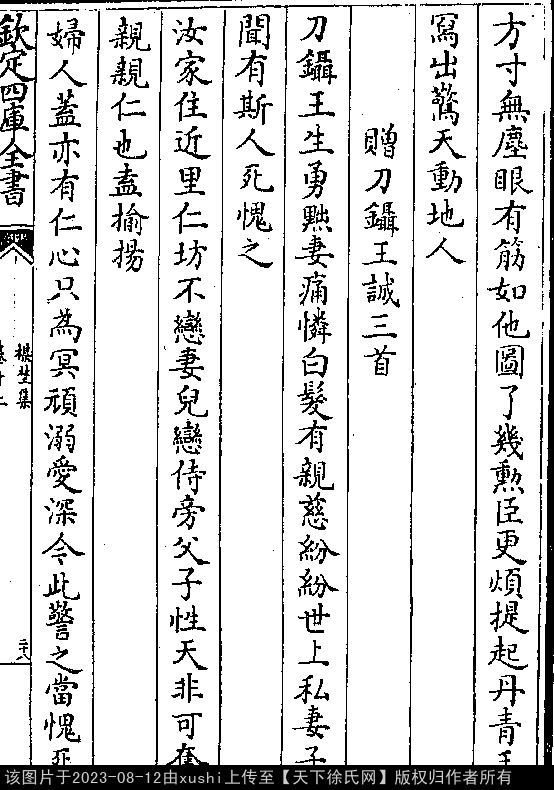 方寸無塵眼有筋如他圖了幾勲臣更煩提起丹青手
寫出驚天動地人
贈刀鑷王誠三首
刀鑷王生勇黜妻痛憐白髮有親慈紛紛世上私妻子
聞有斯人死愧之
汝家住近里仁坊不戀妻兒戀侍旁父子性天非可奪
親親仁也盍揄揚
婦人蓋亦有仁心只為冥頑溺愛深令此警之當愧死
欽定四庫全書
梅埜集
卷十二
二十八
该图片于2023-08-12由xushi上传至【天下徐氏网】版权归作者所有